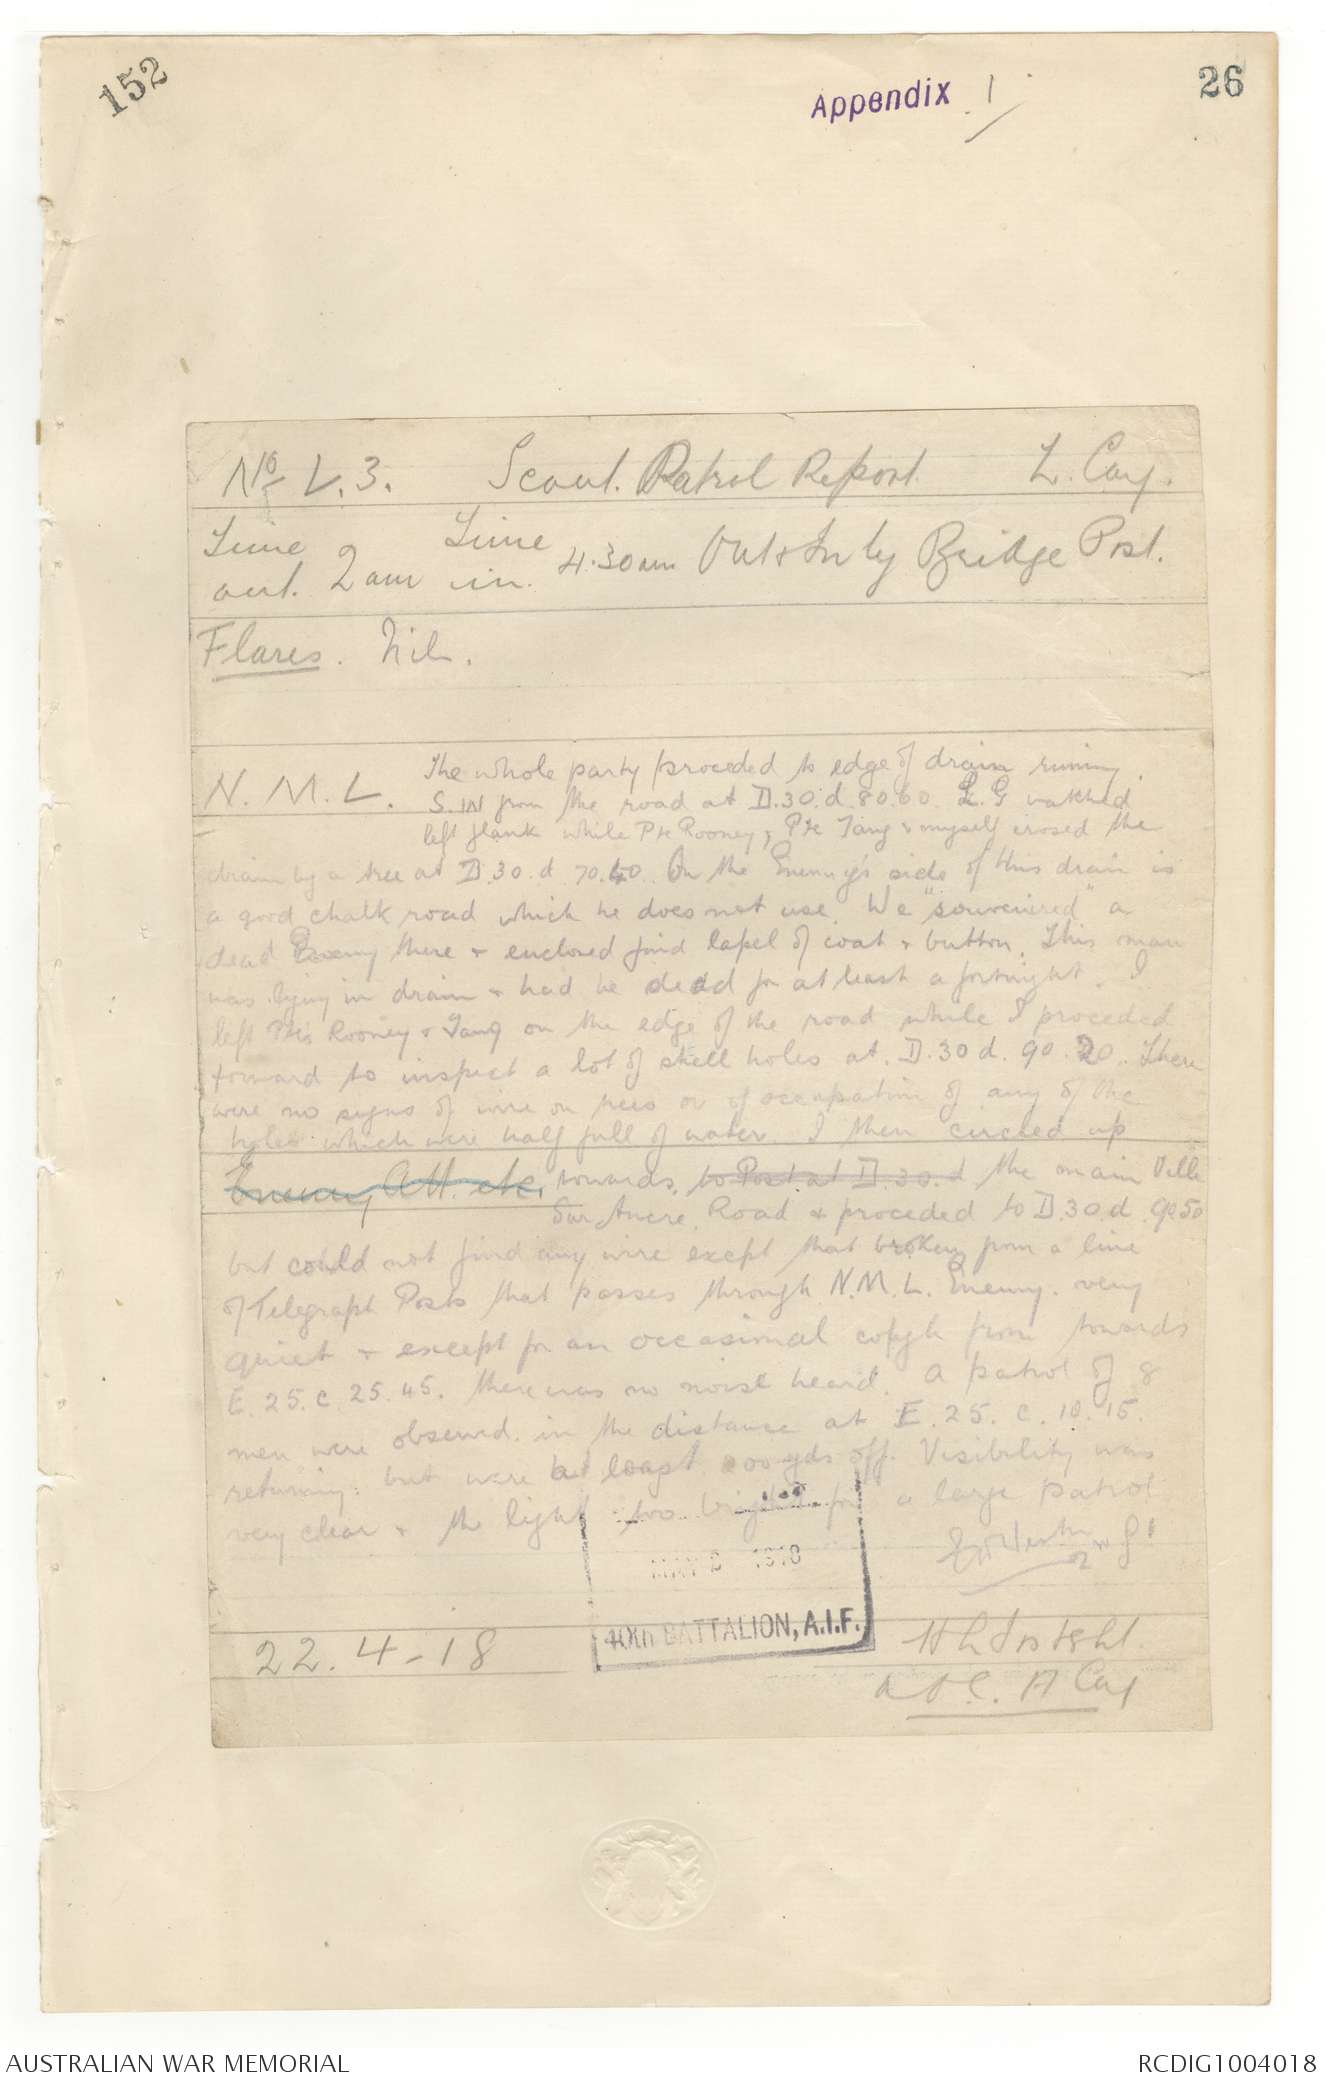 152
26
Appendix 1
No L.3. Scout. Patrol Report L. Coy.
Time out. 2 am Time in. 4.30am Out & In by Bridge Post.
Flares. Nil.
N. M. L. The whole party proceded to edge of drain runing
S.W from the road at D.30.d.80.60. L.G watched
left flank while Pte Rooney, Pte Tang & myself crosed the
drain by a tree at D.30.d 70.40. On the Enemy's side of this drain is
a good chalk road which he does not use. We "souveniered" a
dead Enemy there & enclosed find lapel of coat & button. This man
was lying in drain & had be dead for at least a fortnight. I
left Ptes Rooney & Tang on the edge of the road while I proceded
forward to inspect a lot of shell holes at D.30 d. 90.20. There
were no signs of wire on trees or of occupation of any of the
holes which were half full of water. I then circled up
Enemy Att. etc. towards to Post at D.30.d the main Ville
Sur Ancre Road & proceded to D.30.d 90.50
but could not find any wire except that broken from a line
of Telegraph Posts that passes through N.M.L. Enemy very
quiet & except for an occasional cough from towards
E.25.c.25.45. there was no noise heard. A patrol of 8
men were observed in the distance at E.25.c.10.15.
returning but were at least 00 yds off. Visibility was
very clear & the light too bright for a large patrol
MAY 2 1918
40th BATTALION, A.I.F.
22.4-18
A Coy
AUSTRALIAN WAR MEMORIAL
RCDIG1004018